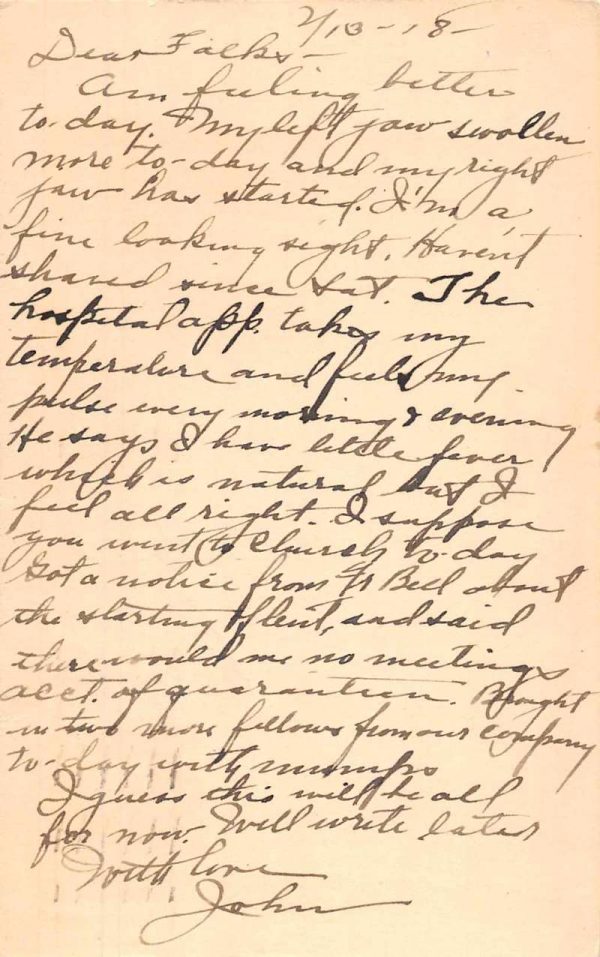 2/13-18-
Dear Folks-
Am feeling better
to-day. My left jaw swollen
more to-day and my right
jaw has started. I'm a
fine looking sight. Haven't
shaved since Sat. The
hospital app. takes my
temperature and feels my
pulse every morning & evening
He says I have little fever
which is natural but I
feel all right. I suppose
you went to Church to-day
Got a notice from Fr Bell about
the starting of lent, and said
there would me no meetings
acct. of quaranteen. Brought
in two more fellows from our company
to-day with mumps
I guess this will be all
for now. Will write later
With love
John